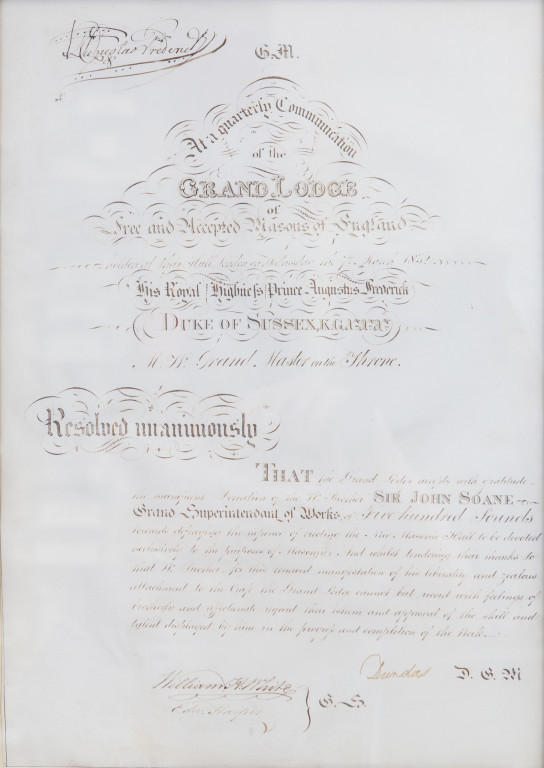 Augustus Frederick
G.M.
At a quarterly Communication
of the
GRAND LODGE
of
Free and Accepted Masons of England
1832
His Royal Highness Prince Augustus Frederick
DUKE OF SUSSEX, K.G.
M. W. Grand Master on the Throne.
Resolved unanimously
THAT the Grand Lodge accepts with gratitude
the munificent Donation of the W. Brother SIR JOHN SOANE
Grand Superintendant of Works, of Five hundred Pounds
towards defraying the expence of erecting the New Masonic Hall to be devoted
exclusively to the purposes of Masonry. And whilst tendering their thanks to
that W. Brother for this renewed manifestation of his liberality and zealous
attachment to the Craft the Grand Lodge cannot but record with feelings of
and affectionate regard their esteem and approval of the skill and
talent displayed by him in the progress and completion of the Work.
Dundas D. G. M
William H. White
Edw Harper
G. S.